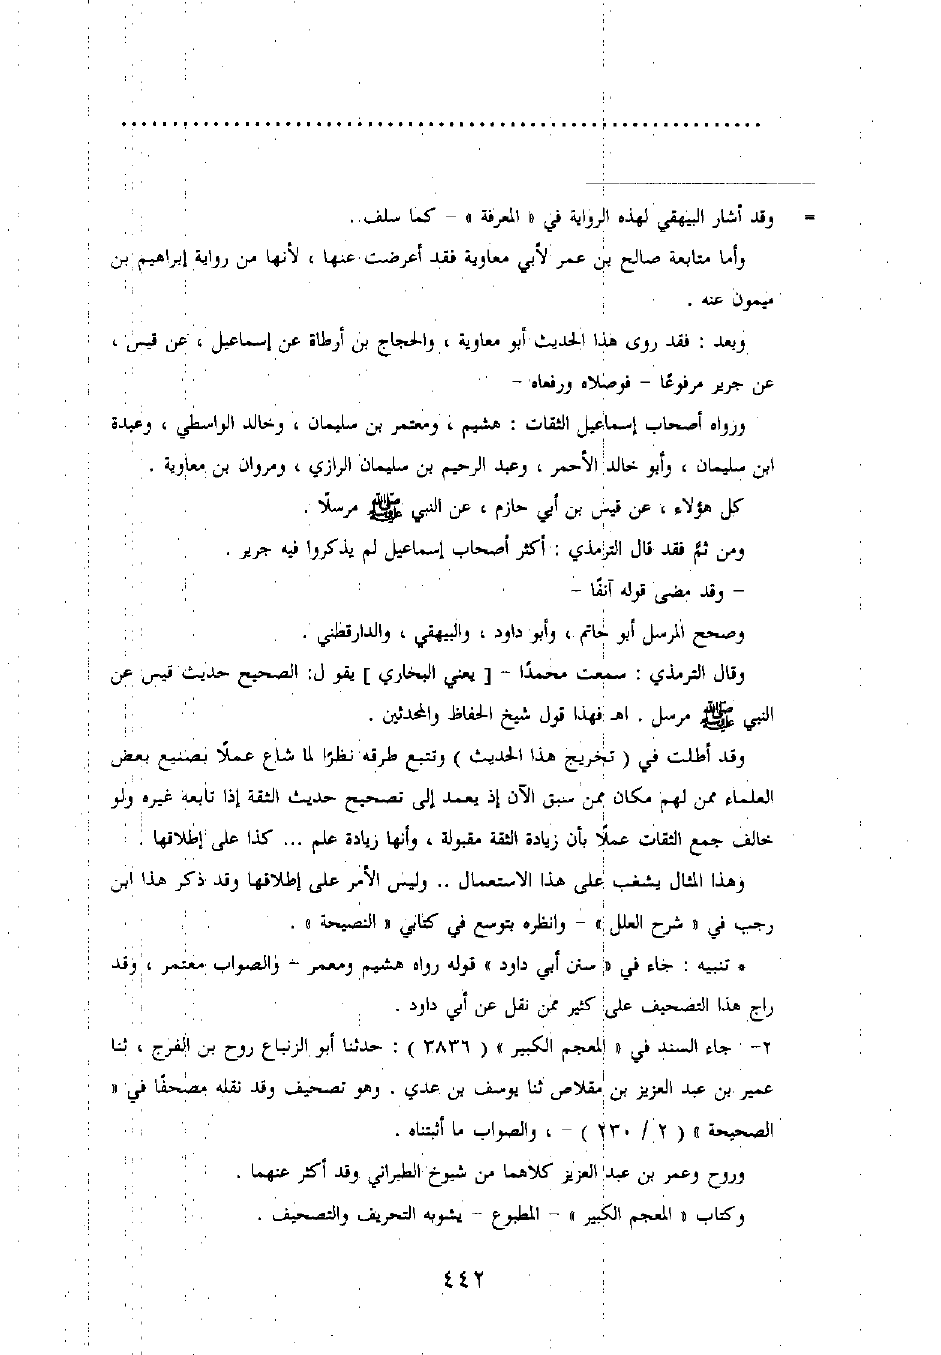 = وقد أشار البيهقي لهذه الرواية في « المعرفة » – كما سلف..
وأما متابعة صالح بن عمر لأبي معاوية فقد أعرضت عنها ، لأنها من رواية إبراهيم بن
ميمون عنه .
وبعد : فقد روى هذا الحديث أبو معاوية ، والحجاج بن أرطاة عن إسماعيل ، عن قيس ،
عن جرير مرفوعًا – فوصلاه ورفعاه –
ورواه أصحاب إسماعيل الثقات : هشيم ، ومعتمر بن سليمان ، وخالد الواسطي ، وعبدة
ابن سليمان ، وأبو خالد الأحمر ، وعبد الرحيم بن سليمان الرازي ، ومروان بن معاوية .
كل هؤلاء ، عن قيس بن أبي حازم ، عن النبي ﷺ مرسلًا .
ومن ثمَّ فقد قال الترمذي : أكثر أصحاب إسماعيل لم يذكروا فيه جرير .
– وقد مضى قوله آنفًا –
وصحح المرسل أبو حاتم ، وأبو داود ، والبيهقي ، والدارقطني .
وقال الترمذي : سمعت محمدًا – [ يعني البخاري ] يقول: الصحيح حديث قيس عن
النبي ﷺ مرسل . اهـ فهذا قول شيخ الحفاظ والمحدثين .
وقد أطلت في ( تخريج هذا الحديث ) وتتبع طرقه نظرًا لما شاع عملًا بصنيع بعض
العلماء ممن لهم مكان ممن سبق الآن إذ يعمد إلى تصحيح حديث الثقة إذا تابعه غيره ولو
خالف جمع الثقات عملًا بأن زيادة الثقة مقبولة ، وأنها زيادة علم ... كذا على إطلاقها .
وهذا المثال يشغب على هذا الاستعمال .. وليس الأمر على إطلاقها وقد ذكر هذا ابن
رجب في « شرح العلل » – وانظره بتوسع في كتابي « النصيحة » .
* تنبيه : جاء في « سنن أبي داود » قوله رواه هشيم ومعمر – والصواب معتمر ، وقد
راج هذا التصحيف على كثير ممن نقل عن أبي داود .
٢– جاء السند في « المعجم الكبير » ( ٣٨٣٦ ) : حدثنا أبو الزنباع روح بن الفرج ، ثنا
عمير بن عبد العزيز بن مقلاص ثنا يوسف بن عدي . وهو تصحيف وقد نقله مصحفًا في «
الصحيحة » ( ٢ / ٢٣٠ ) – ، والصواب ما أثبتناه .
وروح وعمر بن عبد العزيز كلاهما من شيوخ الطبراني وقد أكثر عنهما .
وكتاب « المعجم الكبير » – المطبوع – يشوبه التحريف والتصحيف .
٤٤٢